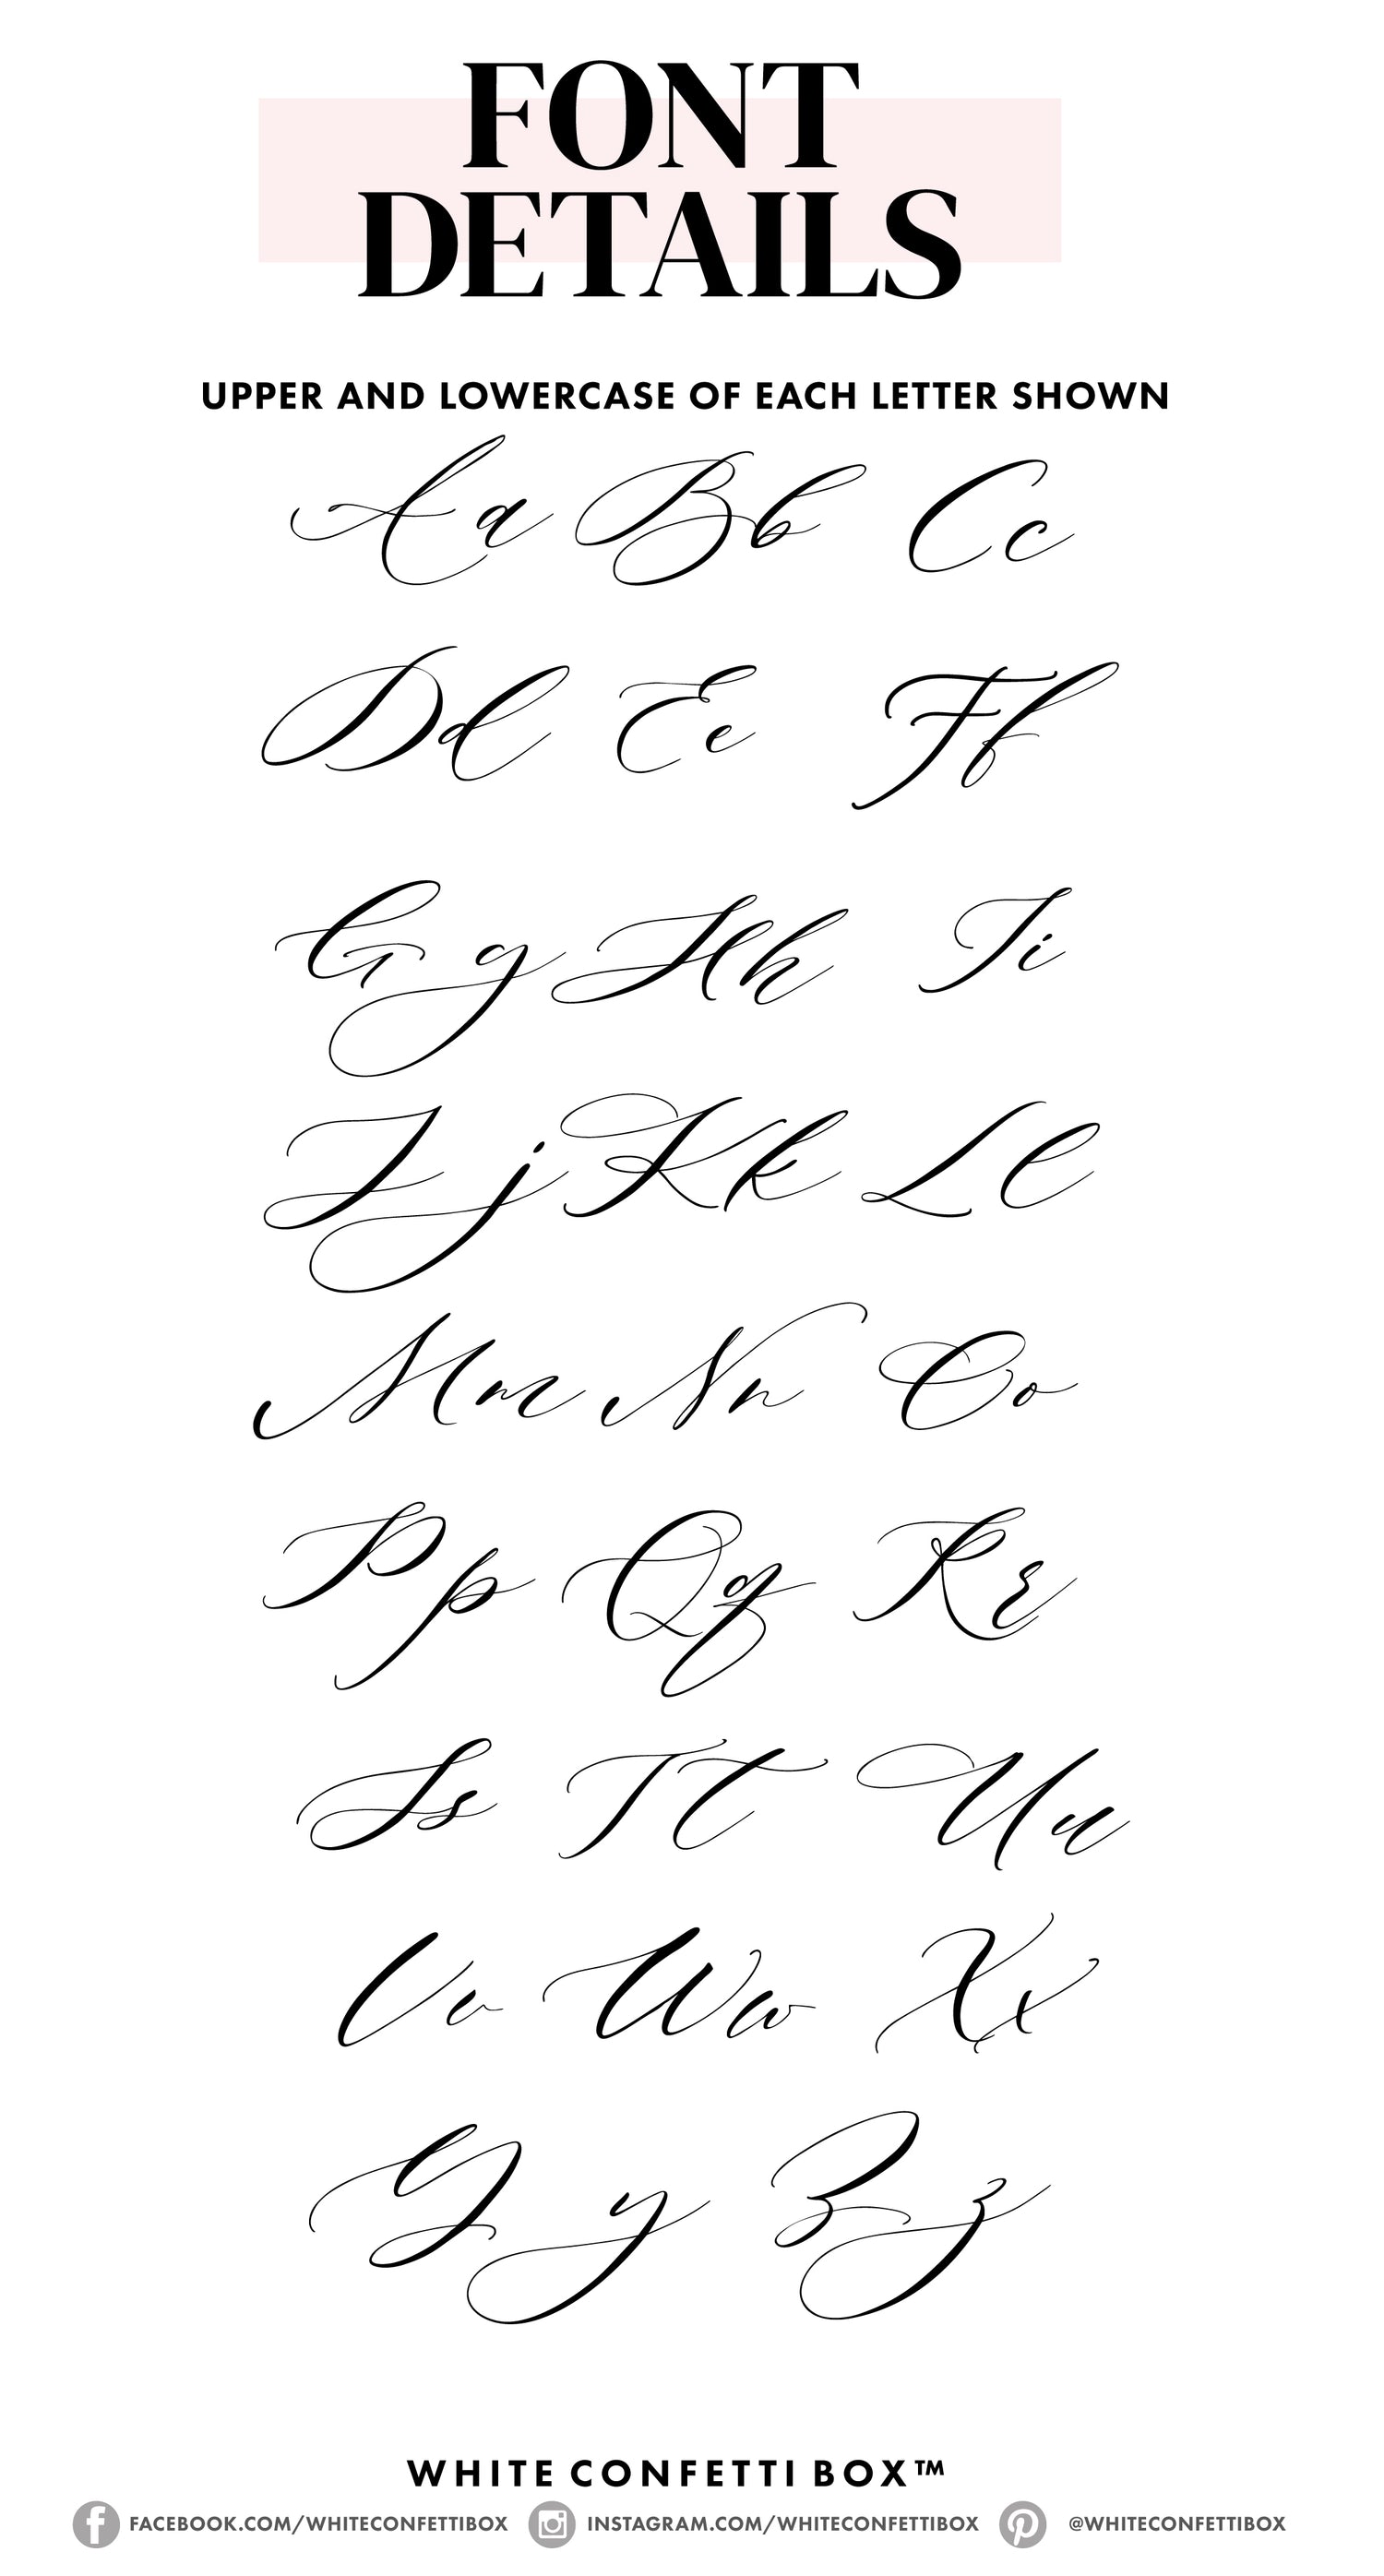 FONT
DETAILS
UPPER AND LOWERCASE OF EACH LETTER SHOWN
Aa Bb Cc
Dd Ee Ff
Gg Hh Ii
Jj Kk Ll
Mm Nn Oo
Pp Qq Rr
Ss Tt Uu
Vv Ww Xx
Yy Zz
WHITE CONFETTI BOX™
FACEBOOK.COM/WHITECONFETTIBOX INSTAGRAM.COM/WHITECONFETTIBOX @WHITECONFETTIBOX